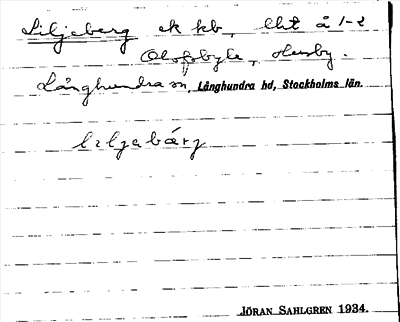 Liljeberg ek kb, lht å 1-2
Olofsbyle, Husby.
Långhundra sn, Långhundra hd, Stockholms län.
liljabärj
JÖRAN SAHLGREN 1934.